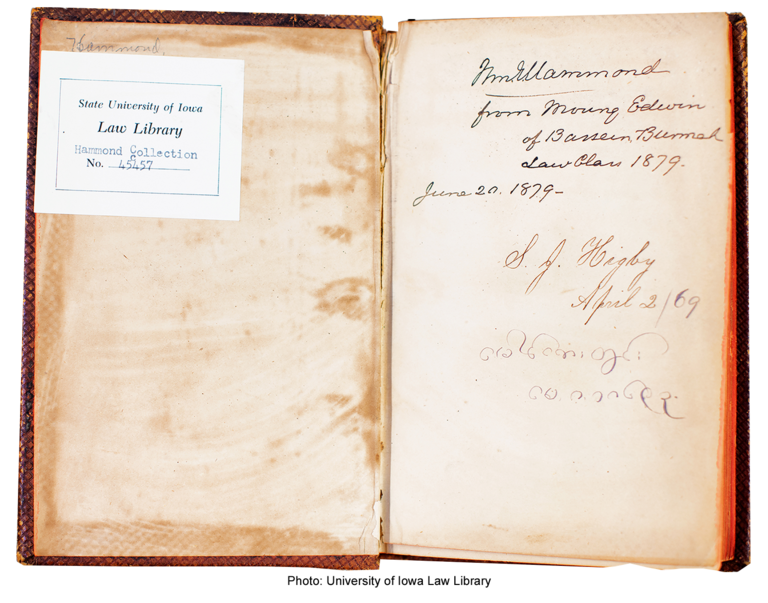 Hammond.
State University of Iowa
Law Library
Hammond Collection
No. 45457
Wm G Hammond
from Moung Edwin
of Bassein, Burmah
Law Class 1879.
June 20. 1879-
S. J. Higby
April 2/69
Photo: University of Iowa Law Library